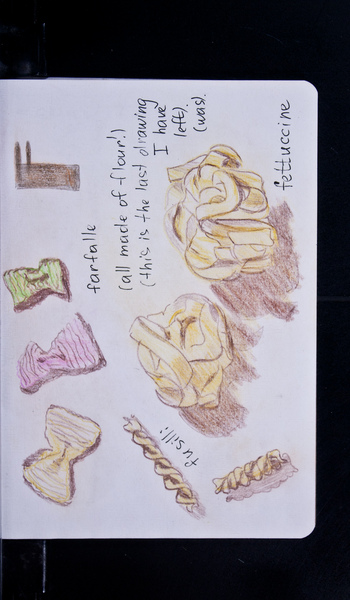 F
farfalle
(all made of flour!)
(this is the last drawing
I have
left).
(was).
fettuccine
fusilli